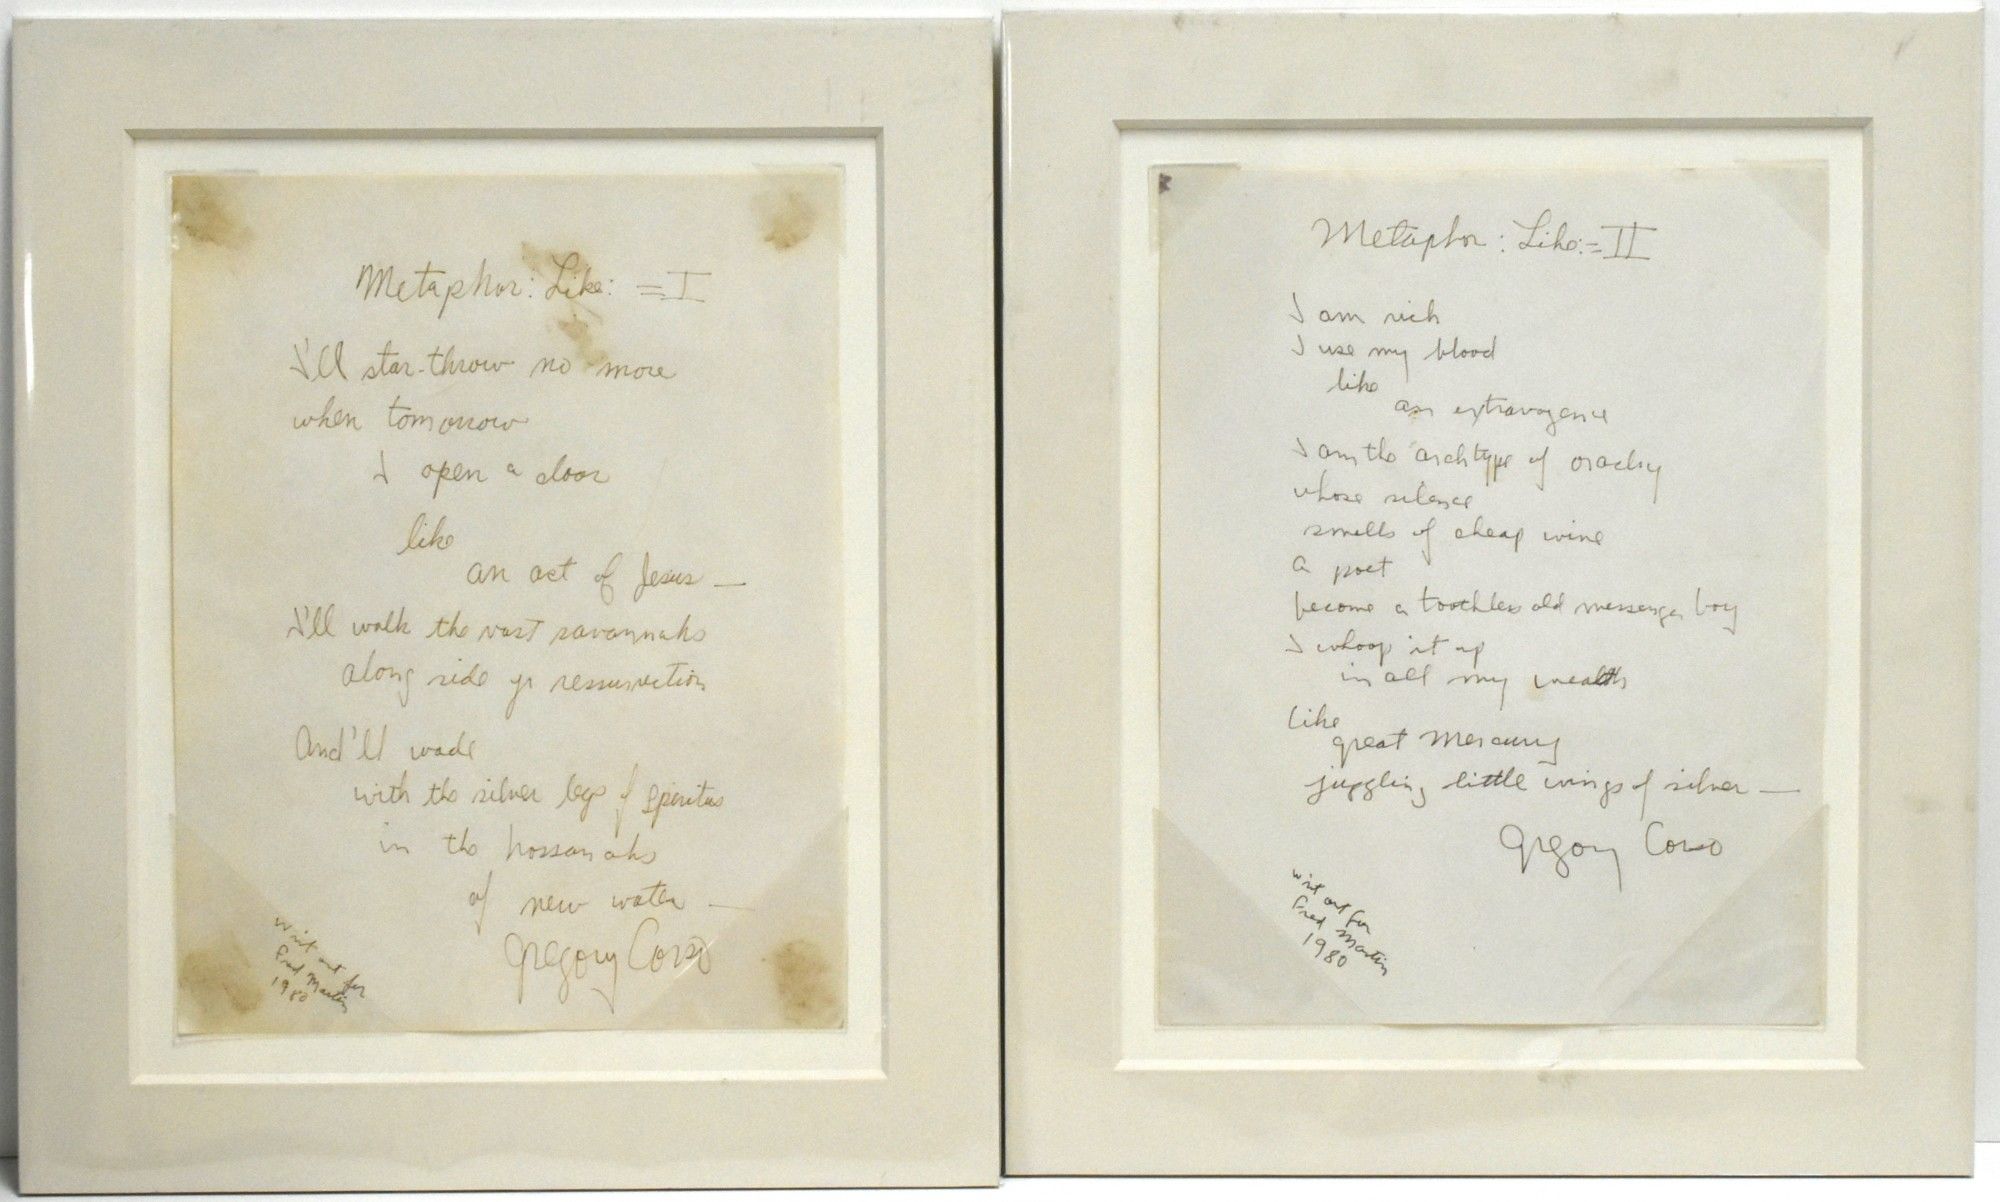 Metaphor: Like: = I
I'll star-throw no more
when tomorrow
I open a door
like
an act of Jesus —
I'll walk the vast savannahs
along side yr ressurrection
And'll wade
with the silver legs of Spiritus
in the hossanahs
of new water —
Gregory Corso
writ out for
Fred Martin
1980
Metaphor: Like: = II
I am rich
I use my blood
like
an extravagence
I am the archtype of
whose silence
smells of cheap wine
a poet
become a toothless old messenger boy
I whoop it up
in all my wealth
like
great Mercury
juggling little wings of silver —
Gregory Corso
writ out for
Fred Martin
1980